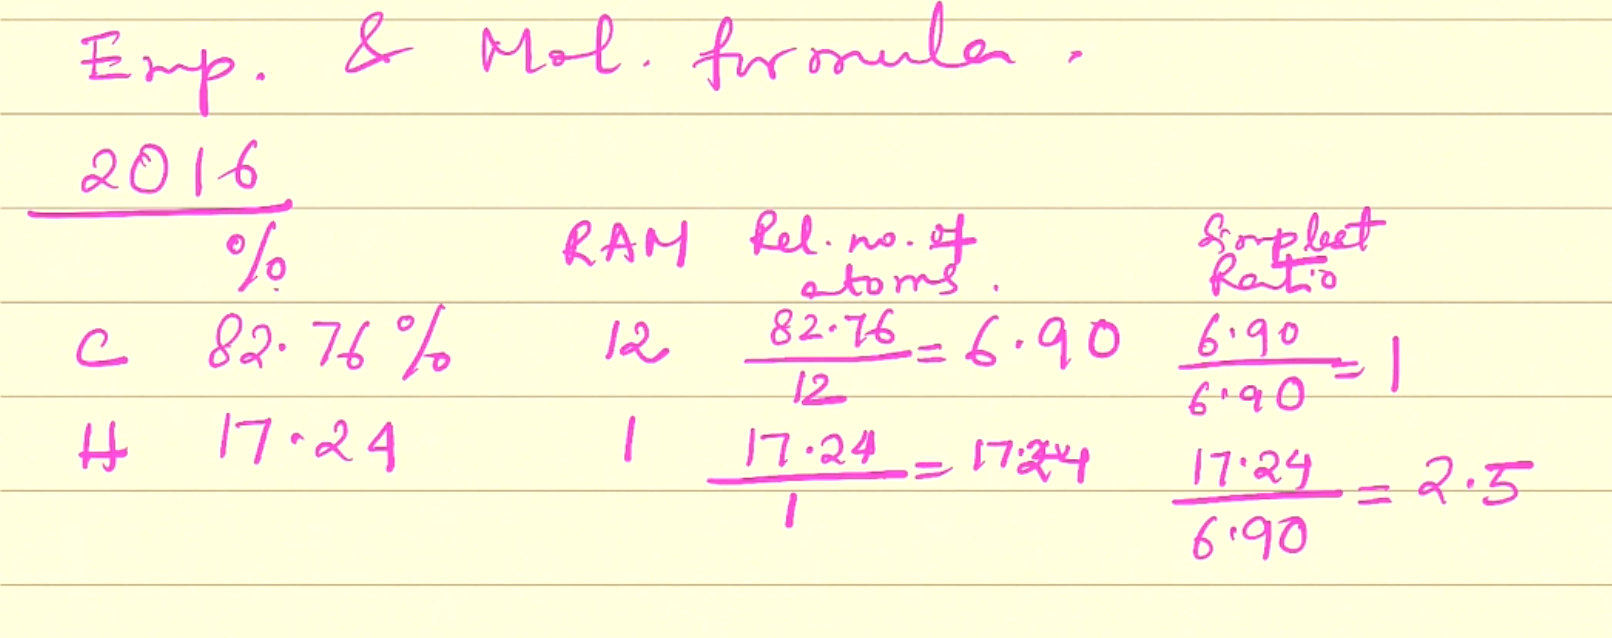 Emp. & Mol. formula.
2016
% RAM Rel. no. of atoms. Simplest Ratio
C 82.76% 12 82.76/12 = 6.90 6.90/6.90 = 1
H 17.24 1 17.24/1 = 17.24 17.24/6.90 = 2.5